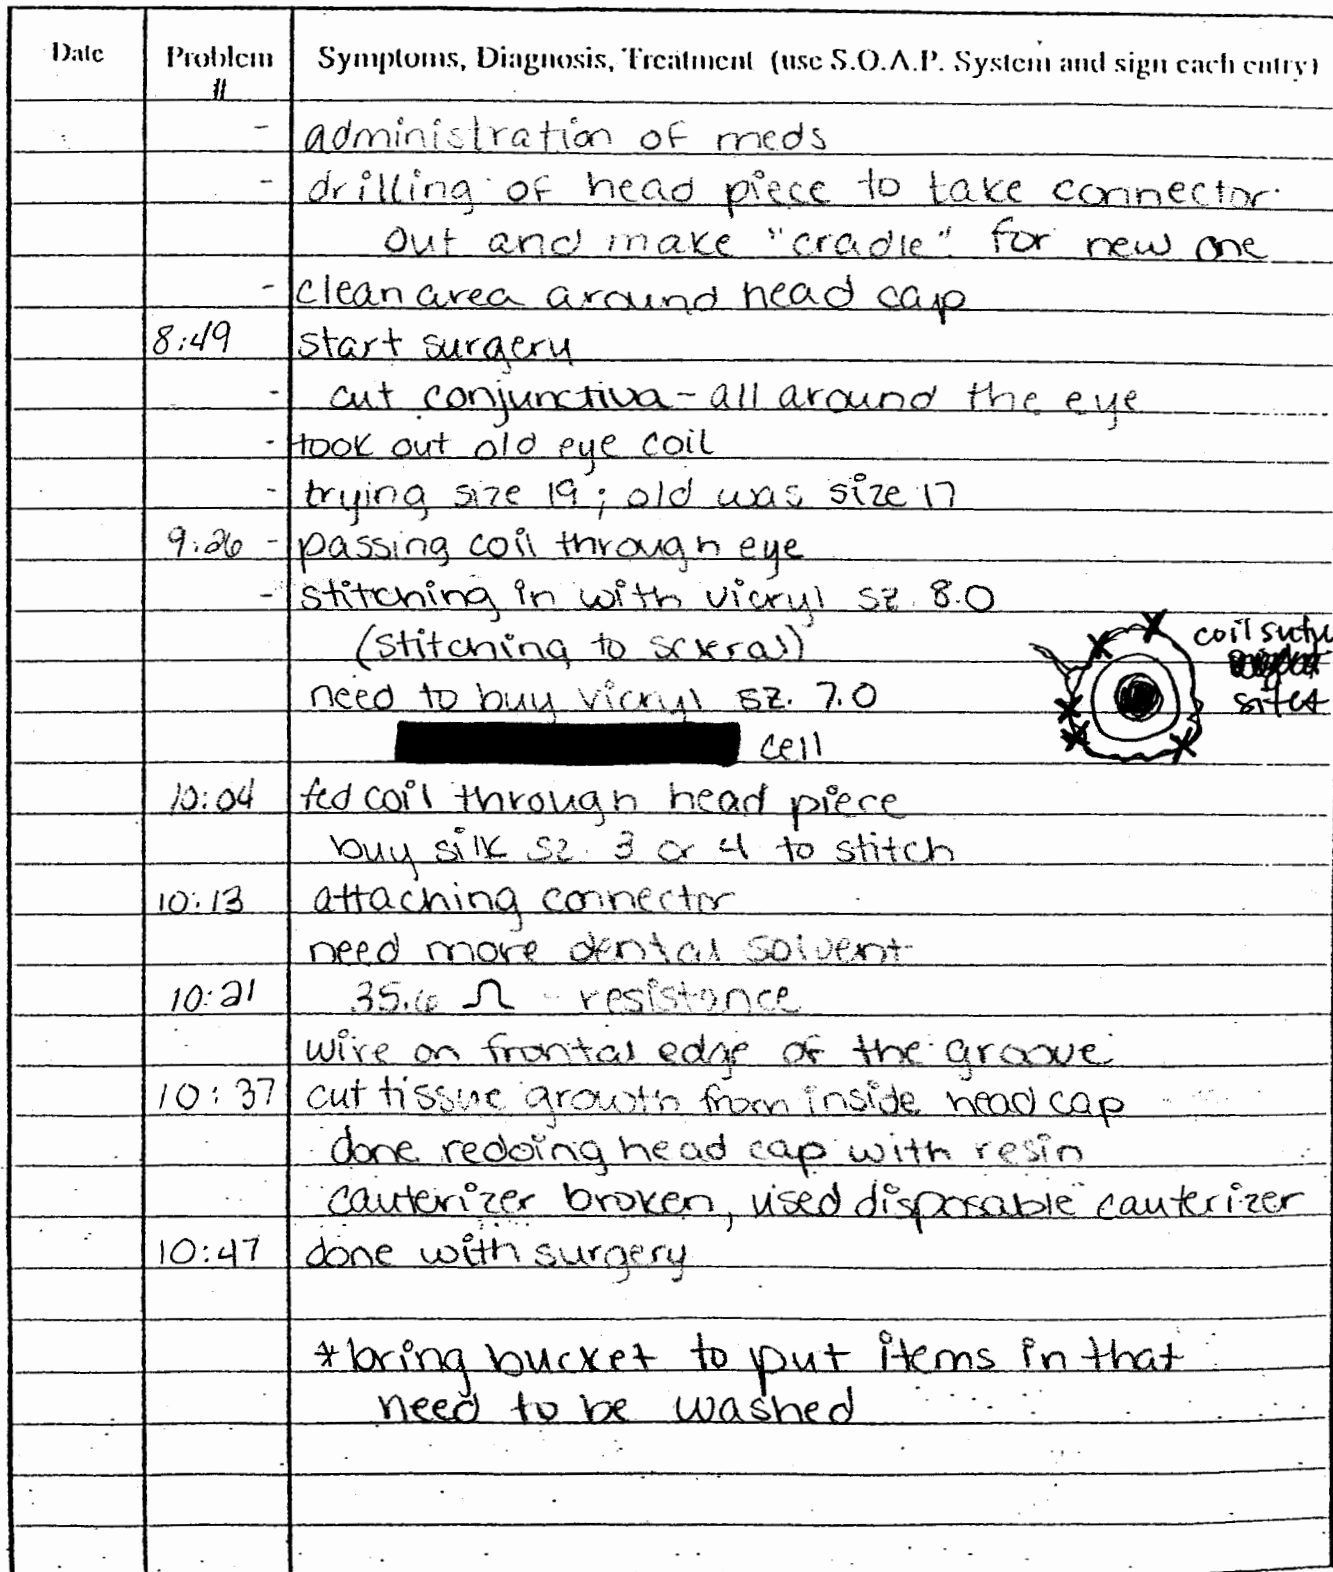 Date Problem # Symptoms, Diagnosis, Treatment (use S.O.A.P. System and sign each entry)
- administration of meds
- drilling of head piece to take connector
out and make "cradle" for new one
- clean area around head cap
8:49 start surgery
- cut conjunctiva - all around the eye
- took out old eye coil
- trying size 19; old was size 17
9:26 - passing coil through eye
- stitching in with vicryl sz. 8.0
(stitching to scleral)
coil suture
sites
need to buy vicryl sz. 7.0
cell
10:04 fed coil through head piece
buy silk sz. 3 or 4 to stitch
10:13 attaching connector
need more dental solvent
10:21 35.6 Ω - resistance
wire on frontal edge of the groove
10:37 cut tissue growth from inside head cap
done redoing head cap with resin
cauterizer broken, used disposable cauterizer
10:47 done with surgery
*bring bucket to put items in that
need to be washed